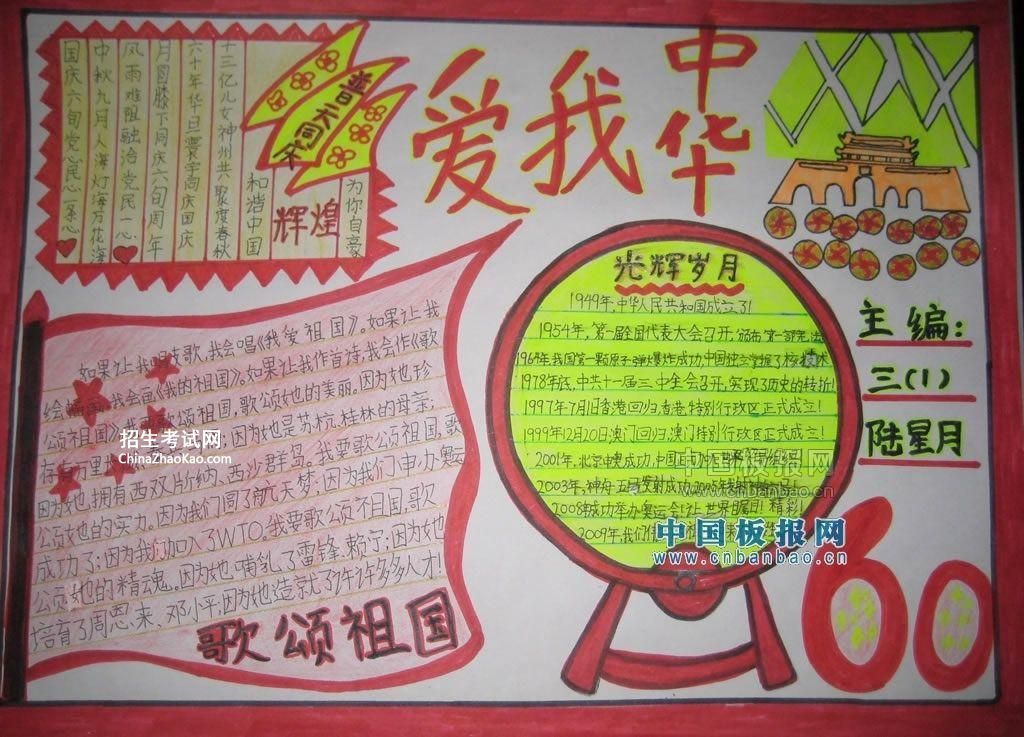 爱我中华
普天同庆
国庆六旬党民心系心
中秋九月人海灯海万花海
风雨难阻融洽党民一心
月圆膝下同庆六旬周年
六十年华旦寰宇高庆国庆
十三亿儿女神州共聚度春秋
和谐中国
辉煌
为你自豪
光辉岁月
1949年,中华人民共和国成立了!
1954年,第一届全国代表大会召开,颁布第一部宪法
1964年我国第一颗原子弹爆炸成功,中国独立掌握了核技术
1978年底,中共十一届三中全会召开,实现了历史的转折!
1997年7月1日香港回归,香港特别行政区正式成立!
1999年12月20日澳门回归,澳门特别行政区正式成立!
2001年,北京申奥成功,中国正式加入世界
2003年,神舟五号发射成功,2005年
2008年成功举办奥运会!让世界瞩目!精彩!
2009年,我们
如果让我唱支歌,我会唱《我爱祖国》。如果让我
绘幅画,我会画《我的祖国》。如果让我作首诗,我会作《歌
颂祖国》。我要歌颂祖国,歌颂她的美丽。因为她珍
存万里长;因为她是苏杭、桂林的母亲;
因为她拥有西双片纳、西沙群岛。我要歌颂祖国,歌
公颂她的实力。因为我们圆了航天梦;因为我们申办奥运
成功了;因为我们加入了WTO。我要歌颂祖国,歌
公颂她的精魂。因为她哺乳了雷锋、赖宁;因为她
培育了周恩来、邓小平;因为她造就了许许多多人才!
歌颂祖国
主编:
三(1)
陆星月
60
招生考试网
ChinaZhaoKao.com
中国板报网
www.cnbanbao.cn
中国板报网
www.cnbanbao.cn